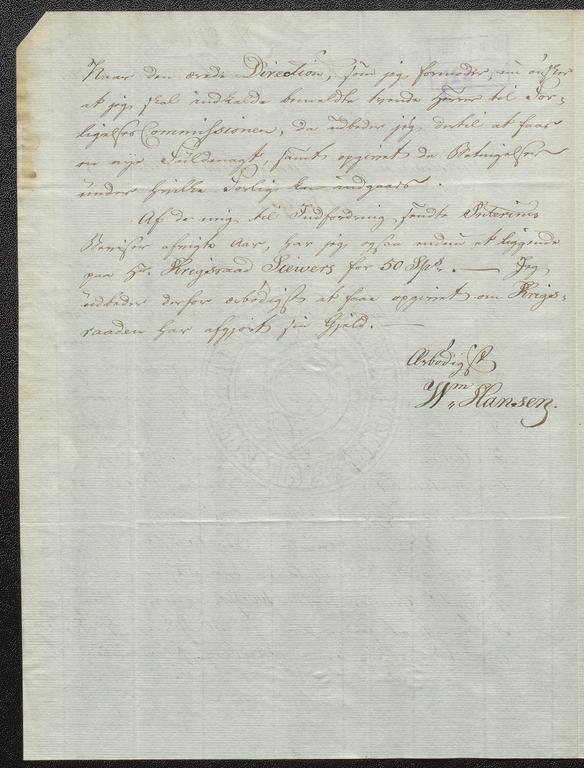 Naar den ærede Direction, som jeg formoder, nu ønsker
at jeg skal indkalde bemeldte tvende Herrer til For-
ligelses Commissionen, da udbeder jeg dertil at faae
en nye Fuldmagt, samt opgivet de Betingelser
under hvilke Forlig kan indgaaes.
Af de mig til Indfordring sendte Interims
Beviser afvigte Aar, har jeg ogsaa endnu et liggende
paa Hr. Krigsraad Siewers for 50 Spd. — Jeg
udbeder derfor ærbødigst at faae opgivet om Krigs-
raaden har afgjort sin Gjeld. —
Ærbødigst
Wm Hansen.